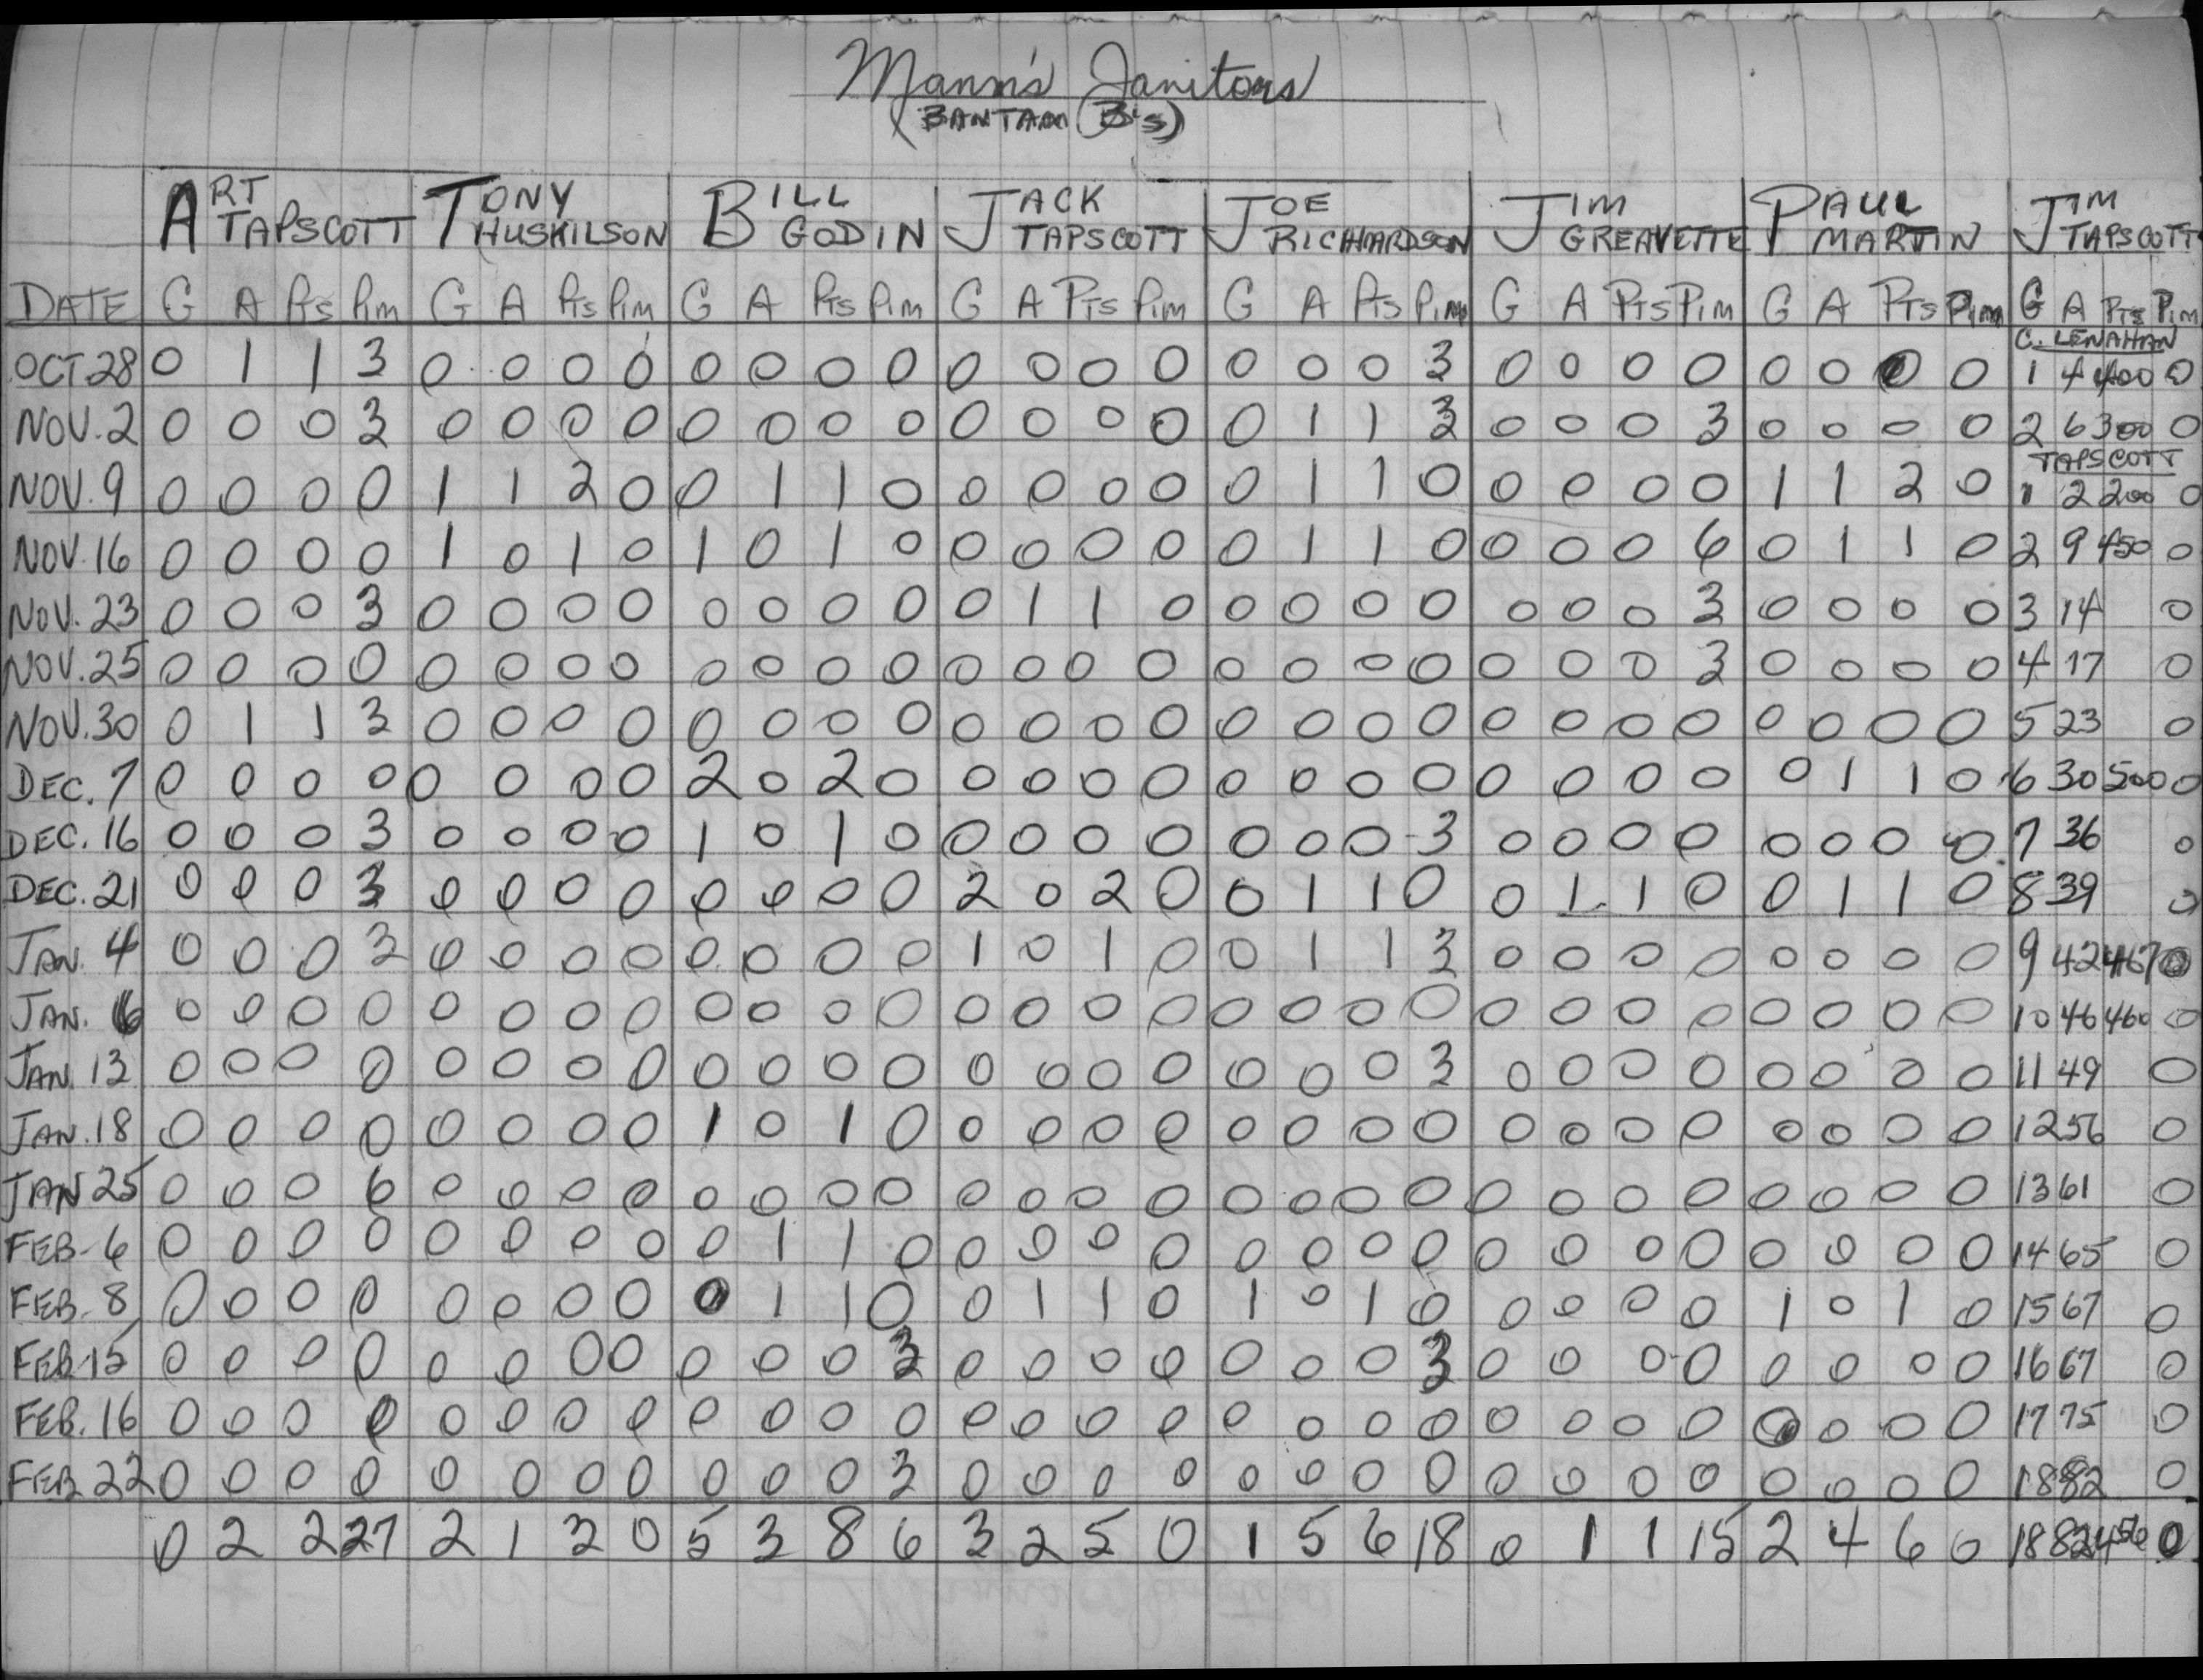 Mann's Janitors
(BANTAM B's)
ART TAPSCOTT TONY HUSKILSON BILL GODIN JACK TAPSCOTT JOE RICHARDSON JIM GREAVETTE PAUL MARTIN JIM TAPSCOTT
DATE G A Pts Pim G A Pts Pim G A Pts Pim G A Pts Pim G A Pts Pim G A Pts Pim G A Pts Pim G A Pts Pim
C. LENAHAN
OCT 28 0 1 1 3 0 0 0 0 0 0 0 0 0 0 0 0 0 0 0 3 0 0 0 0 0 0 0 0 1 4 400 0
NOV. 2 0 0 0 3 0 0 0 0 0 0 0 0 0 0 0 0 0 1 1 3 0 0 0 3 0 0 0 0 2 6 300 0
TAPSCOTT
NOV. 9 0 0 0 0 1 1 2 0 0 1 1 0 0 0 0 0 0 1 1 0 0 0 0 0 1 1 2 0 1 2 200 0
NOV. 16 0 0 0 0 1 0 1 0 1 0 1 0 0 0 0 0 0 1 1 0 0 0 0 6 0 1 1 0 2 9 450 0
NOV. 23 0 0 0 3 0 0 0 0 0 0 0 0 0 1 1 0 0 0 0 0 0 0 0 3 0 0 0 0 3 14 0
NOV. 25 0 0 0 0 0 0 0 0 0 0 0 0 0 0 0 0 0 0 0 0 0 0 0 3 0 0 0 0 4 17 0
NOV. 30 0 1 1 3 0 0 0 0 0 0 0 0 0 0 0 0 0 0 0 0 0 0 0 0 0 0 0 0 5 23 0
DEC. 7 0 0 0 0 0 0 0 0 2 0 2 0 0 0 0 0 0 0 0 0 0 0 0 0 0 1 1 0 6 30 500 0
DEC. 16 0 0 0 3 0 0 0 0 1 0 1 0 0 0 0 0 0 0 0 3 0 0 0 0 0 0 0 0 7 36 0
DEC. 21 0 0 0 3 0 0 0 0 0 0 0 0 2 0 2 0 0 1 1 0 0 1 1 0 0 1 1 0 8 39 0
JAN. 4 0 0 0 3 0 0 0 0 0 0 0 0 1 0 1 0 0 1 1 3 0 0 0 0 0 0 0 0 9 42 467 0
JAN. 6 0 0 0 0 0 0 0 0 0 0 0 0 0 0 0 0 0 0 0 0 0 0 0 0 0 0 0 0 10 46 460 0
JAN. 13 0 0 0 0 0 0 0 0 0 0 0 0 0 0 0 0 0 0 0 3 0 0 0 0 0 0 0 0 11 49 0
JAN. 18 0 0 0 0 0 0 0 0 1 0 1 0 0 0 0 0 0 0 0 0 0 0 0 0 0 0 0 0 12 56 0
JAN 25 0 0 0 6 0 0 0 0 0 0 0 0 0 0 0 0 0 0 0 0 0 0 0 0 0 0 0 0 13 61 0
FEB. 6 0 0 0 0 0 0 0 0 0 1 1 0 0 0 0 0 0 0 0 0 0 0 0 0 0 0 0 0 14 65 0
FEB. 8 0 0 0 0 0 0 0 0 0 1 1 0 0 1 1 0 1 0 1 0 0 0 0 0 1 0 1 0 15 67 0
FEB. 15 0 0 0 0 0 0 0 0 0 0 0 3 0 0 0 0 0 0 0 3 0 0 0 0 0 0 0 0 16 67 0
FEB. 16 0 0 0 0 0 0 0 0 0 0 0 0 0 0 0 0 0 0 0 0 0 0 0 0 0 0 0 0 17 75 0
FEB. 22 0 0 0 0 0 0 0 0 0 0 0 3 0 0 0 0 0 0 0 0 0 0 0 0 0 0 0 0 18 82 0
0 2 2 27 2 1 3 0 5 3 8 6 3 2 5 0 1 5 6 18 0 1 1 15 2 4 6 0 18 82 456 0